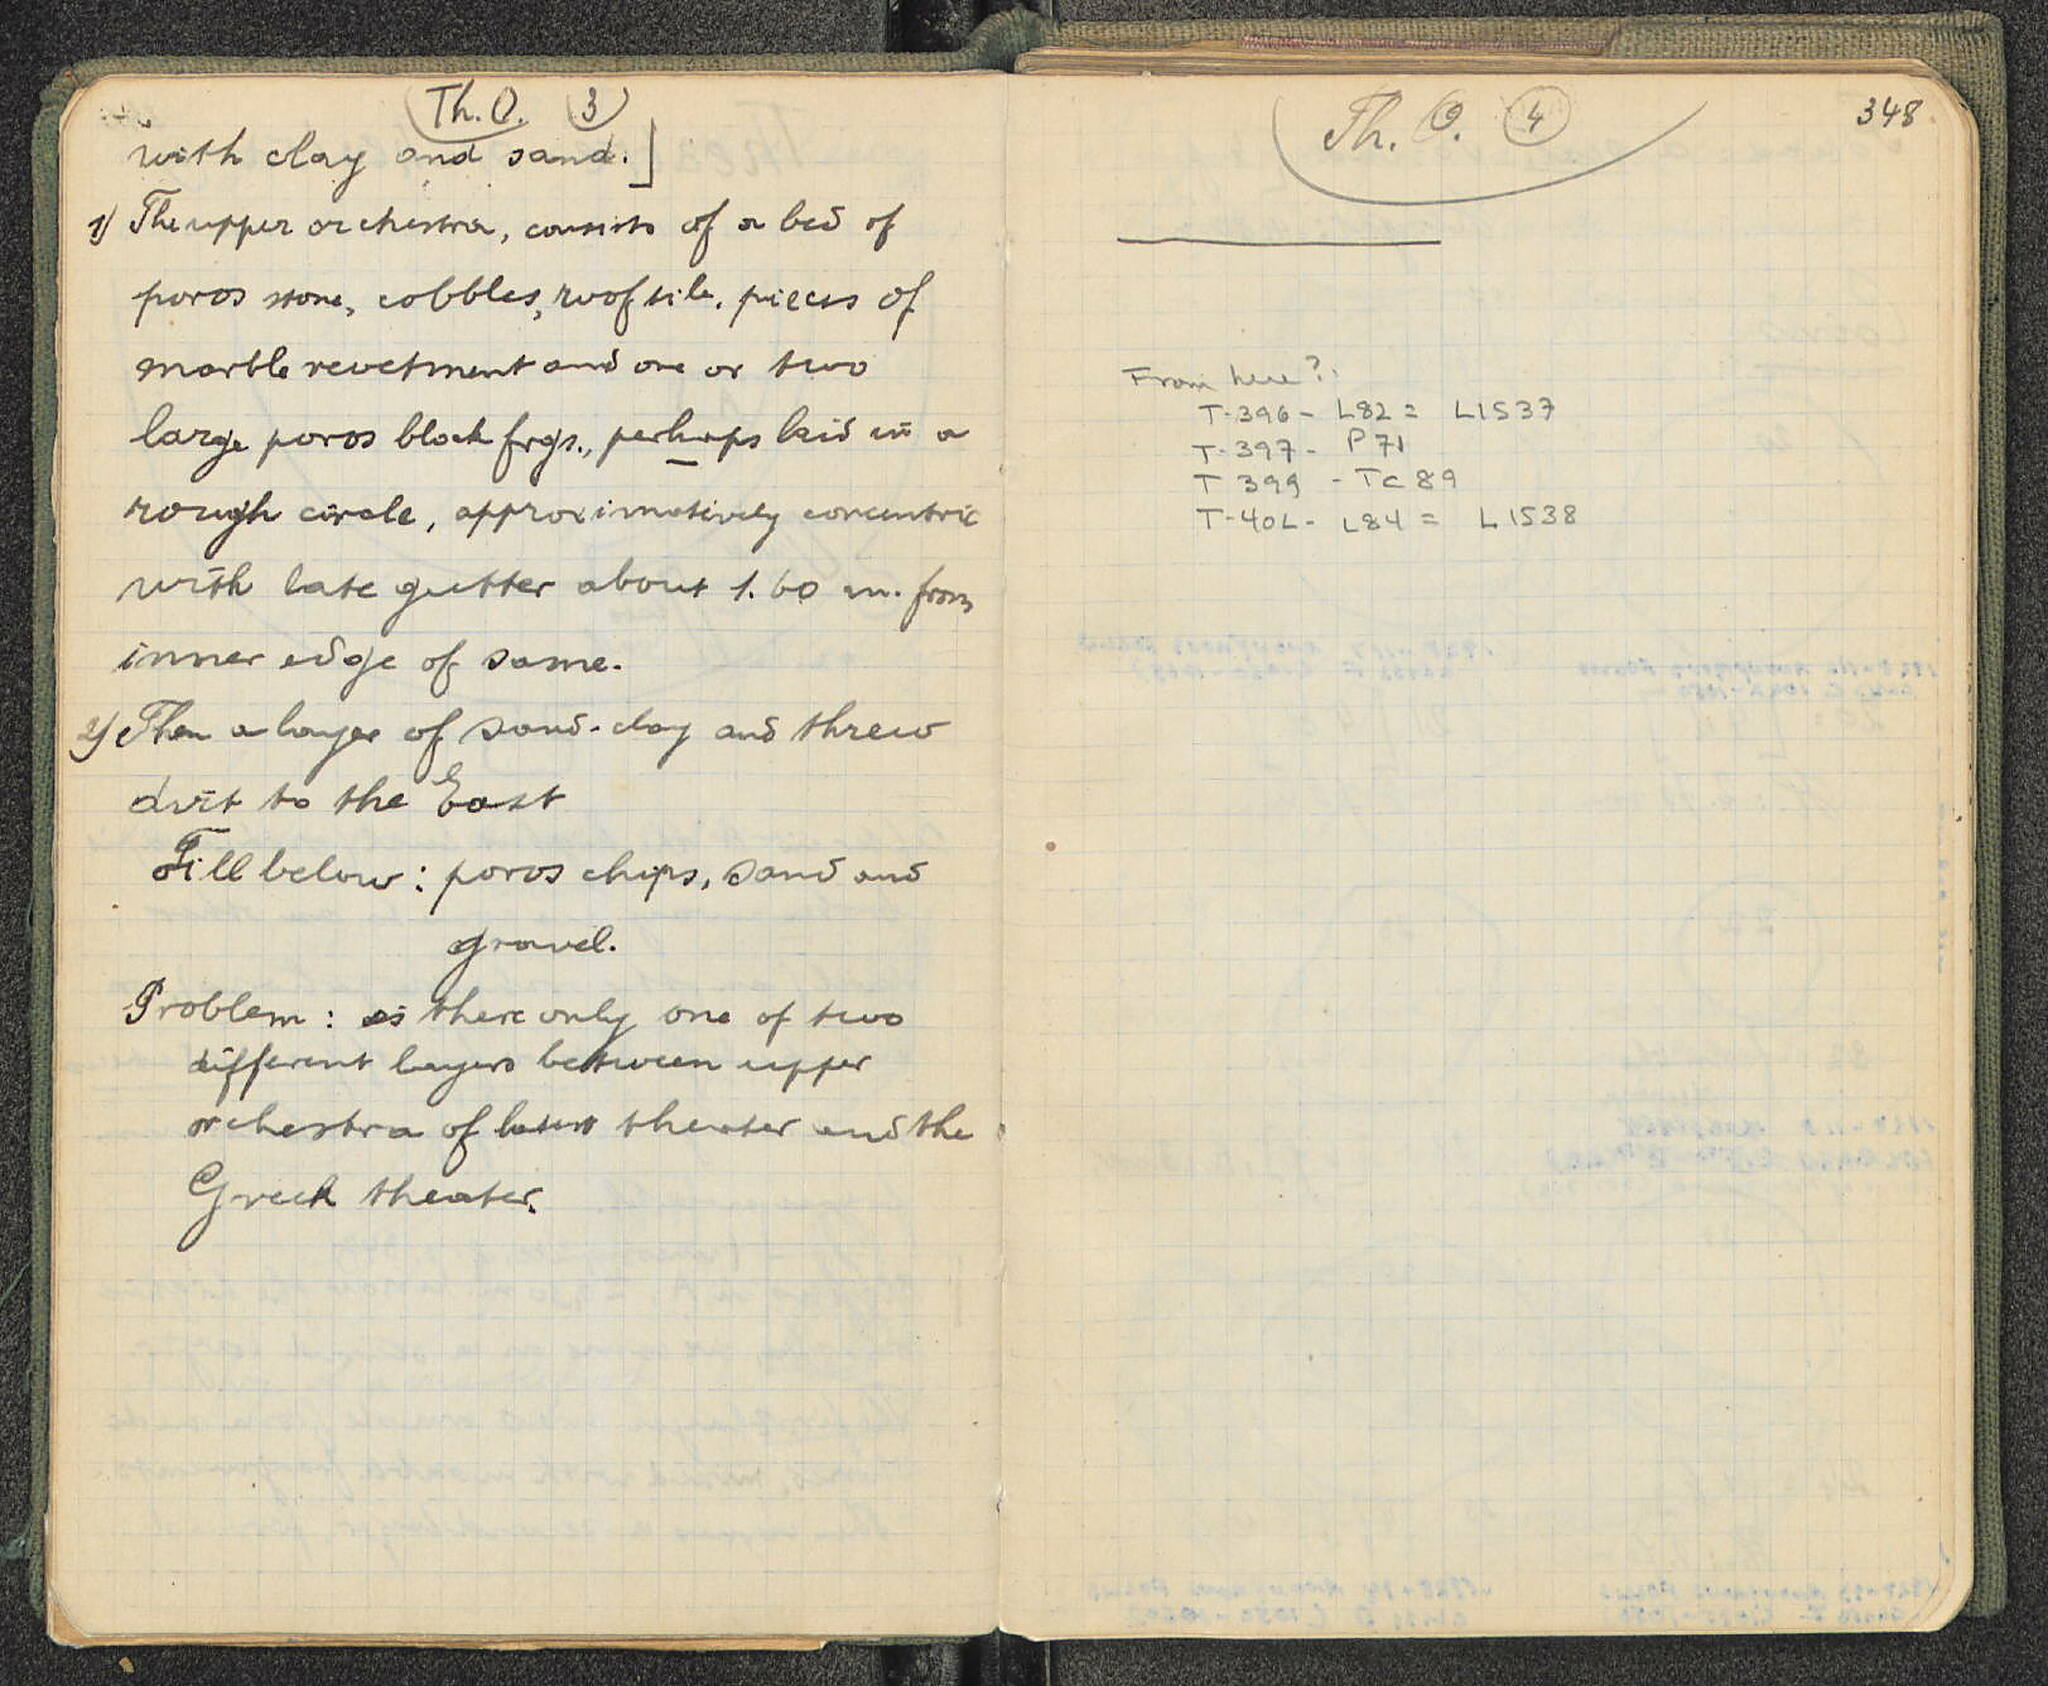 Th. O. 3
with clay and sand.]
1) The upper orchestra, consists of a bed of
poros stone, cobbles, roof tile, pieces of
marble revetment and one or two
large poros block frgs., perhaps laid in a
rough circle, approximatively concentric
with late gutter about 1.60 m. from
inner edge of same.
2) Then a layer of sand-clay and threw
dirt to the East
Fill below: poros chips, sand and
gravel.
Problem: is there only one of two
different layers between upper
orchestra of latest theater and the
Greek theater.
Th. O. 4
348
From here?
T-396 - L82 = L1537
T-397 - P71
T 399 - TC 89
T-40L - L84 = L1538